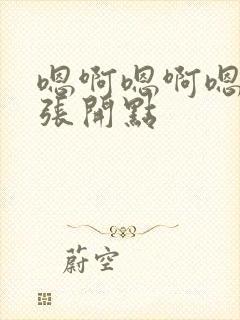 嗯啊嗯啊嗯
張開點
蔚空